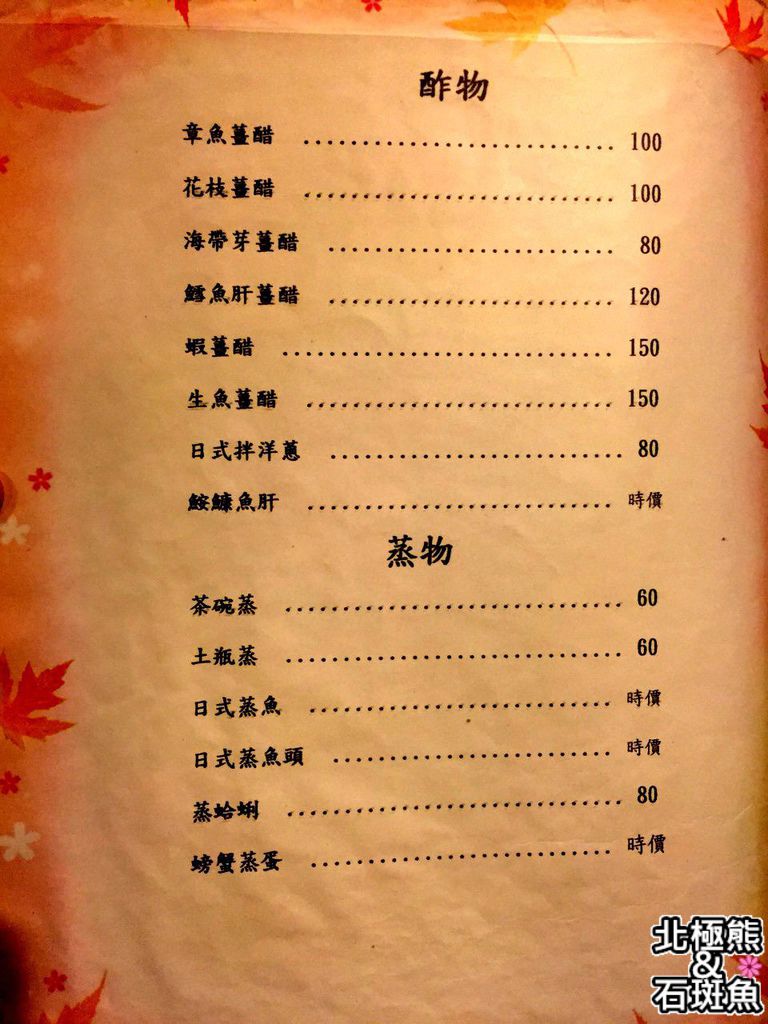 酢物
章魚薑醋 ........................... 100
花枝薑醋 ........................... 100
海帶芽薑醋 ........................ 80
鱈魚肝薑醋 ........................ 120
蝦薑醋 ............................. 150
生魚薑醋 ........................... 150
日式拌洋蔥 ......................... 80
鮟鱇魚肝 ........................... 時價
蒸物
茶碗蒸 .............................. 60
土瓶蒸 .............................. 60
日式蒸魚 ........................... 時價
日式蒸魚頭 ........................ 時價
蒸蛤蜊 .............................. 80
螃蟹蒸蛋 ........................... 時價
北極熊
&
石斑魚